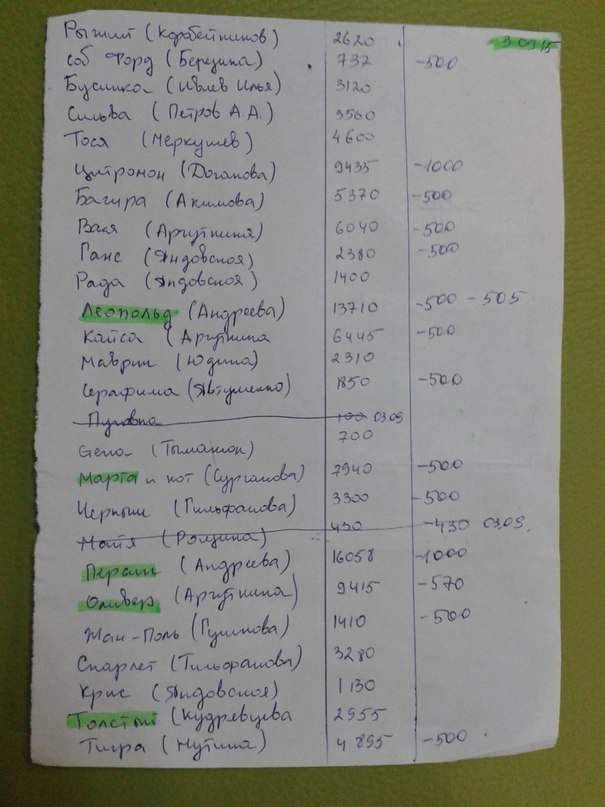 Рыжий (Коробейников) 2620 3.09.15
соб Форд (Березина) 737 -500
Бусинка (Ивлев Илья) 3120
Сильва (Петров А.А.) 3560
Тося (Меркушев) 4600
Цитромон (Доганова) 9435 -1000
Багира (Акимова) 5370 -500
Вася (Аргуткина) 6040 -500
Ганс (Яндовская) 2380 -500
Рада (Яндовская) 1400
Леопольд (Андреева) 13710 -500 - 505
Кайса (Аргуткина 6445 -500
Маврик (Юдина) 2310
Серафима (Явтушенко) 1850 -500
Пуговка 100 03.09
Gena (Тыманюк) 700
Марта и кот (Сурганова) 7940 -500
Черныш (Гильфанова) 3300 -500
Майя (Рощина) 430 -430 03.09.
Персик (Андреева) 16058 -1000
Оливер (Аргуткина) 9415 -570
Жан-Поль (Гушнова) 1410 -500
Скарлет (Гильфанова) 3280
Крис (Яндовская) 1130
Толстый (Кудревцева 2955
Тигра (Мутина) 4895 -500